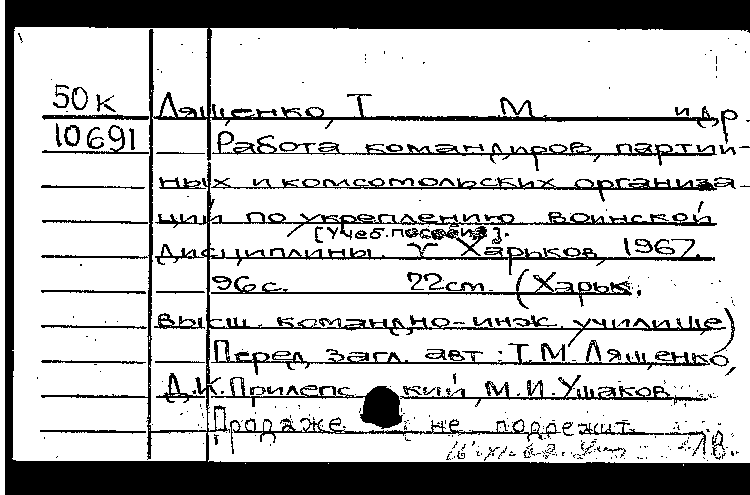 50к Лященко, Т М. и др.
10691 Работа командиров, партий-
ных и комсомольских организа-
ций по укреплению воинской
[Учеб. пособие].
дисциплины. Харьков, 1967.
96 с. 22 см. (Харьк.
высш. командно-инж. училище)
Перед загл. авт.: Т.М. Лященко,
Д.К. Прилепский, М.И. Ушаков.
Продаже не подлежит.
18.